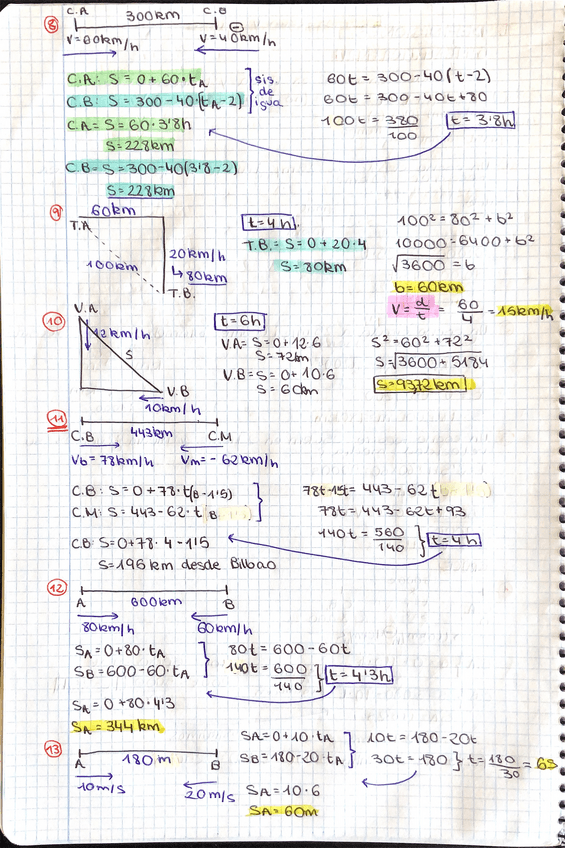 8 C.A 300km C.B
V=60km/h V=40km/h ⊖
C.A: S = 0+60·tA
C.B: S = 300-40·(tA-2)
sis. de igua
C.A = S = 60·3'8h
S=228km
C.B = S=300-40(3'8-2)
S=228km
60t = 300-40(t-2)
60t = 300-40t+80
100t = 380/100 t=3'8h
9 60km
T.A
100km
20km/h
↳80km
T.B.
t=4h
T.B.= S=0+20·4
S=80km
100² = 80² + b²
10000=6400+b²
√3600 = b
b=60km
V= d/t = 60/4 = 15km/h
10 V.A
12km/h
S
V.B
10km/h
t=6h
V.A= S=0+12·6
S=72km
V.B= S=0+10·6
S=60km
S²=60²+72²
S=√3600+5184
S=93,72km
11 443km
C.B C.M
Vb=78km/h Vm=-62km/h
C.B: S=0+78·t(B-1'5)
C.M: S=443-62·tB
78t-1'5t=443-62t
78t=443-62t+93
140t=560/140 t=4h
C.B: S=0+78·4-1'5
S=196km desde Bilbao
12 A 600km B
80km/h 60km/h
SA=0+80·tA
SB=600-60·tA
80t=600-60t
140t=600/140 t=4'3h
SA=0+80·4'3
SA=344km
13 A 180m B
10m/s 20m/s
SA=0+10·tA
SB=180-20·tA
10t=180-20t
30t=180 t=180/30=6s
SA=10·6
SA=60m